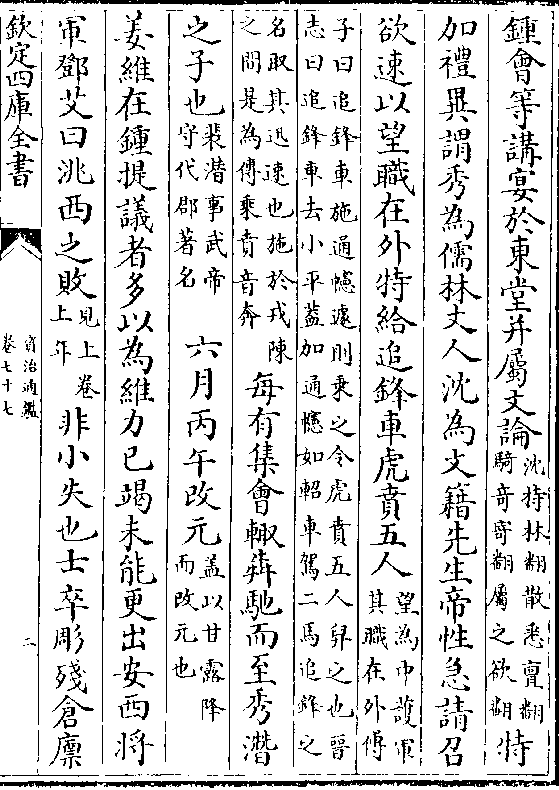 鍾會等講宴於東堂并屬文論沈持林翻散悉亶翻騎奇寄翻屬之欲翻特
加禮異謂秀為儒林丈人沈為文籍先生帝性急請召
欲速以望職在外特給追鋒車虎賁五人望為中護軍其職在外傅
子曰追鋒車施通幰遽則乘之令虎賁五人舁之也晉志曰追鋒車去小平葢加通幰如軺車駕二馬追鋒之
名取其迅速也施於戎陳之間是為傳乘賁音奔每有集會輙犇馳而至秀潛
之子也裴潛事武帝守代郡著名六月丙午改元盖以甘露降而改元也
姜維在鍾提議者多以為維力已竭未能更出安西將
軍鄧艾曰洮西之敗見上卷上年非小失也士卒彫殘倉廪
欽定四庫全書
資治通鑑
卷七十七
二